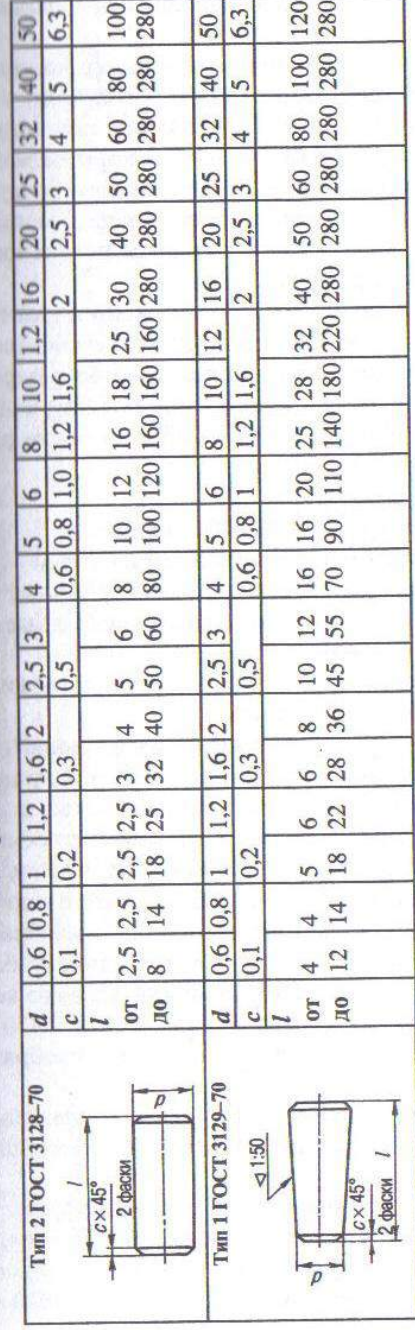 Тип 2 ГОСТ 3128–70
l
c × 45°
2 фаски
d
d 0,6 0,8 1 1,2 1,6 2 2,5 3 4 5 6 8 10 1,2 16 20 25 32 40 50
c 0,1 0,2 0,3 0,5 0,6 0,8 1,0 1,2 1,6 2 2,5 3 4 5 6,3
l
от 2,5 2,5 2,5 2,5 3 4 5 6 8 10 12 16 18 25 30 40 50 60 80 100
до 8 14 18 25 32 40 50 60 80 100 120 160 160 160 280 280 280 280 280 280
Тип 1 ГОСТ 3129–70
1:50
d
c × 45°
2 фаски l
d 0,6 0,8 1 1,2 1,6 2 2,5 3 4 5 6 8 10 12 16 20 25 32 40 50
c 0,1 0,2 0,3 0,5 0,6 0,8 1 1,2 1,6 2 2,5 3 4 5 6,3
l
от 4 4 5 6 6 8 10 12 16 16 20 25 28 32 40 50 60 80 100 120
до 12 14 18 22 28 36 45 55 70 90 110 140 180 220 280 280 280 280 280 280